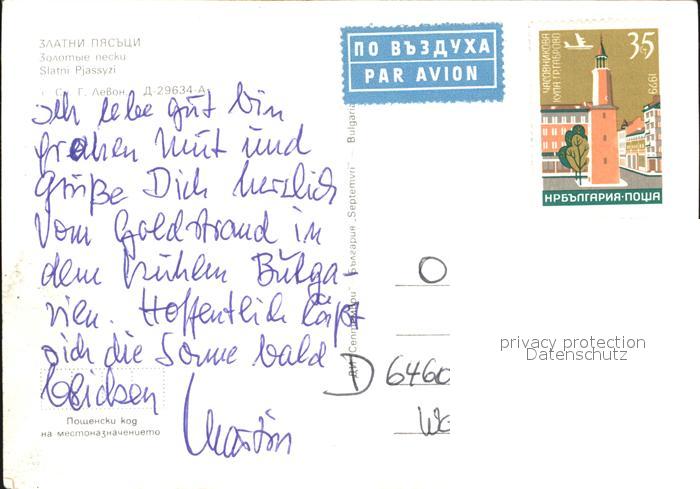 ЗЛАТНИ ПЯСЪЦИ
Золотые пески
Slatni Pjassyzi
Г. Левон. Д-29634-А
Ich lebe gut bin
frohen Mut und
Grüße Dich herzlich
vom Goldstrand in
dem kühlen Bulga-
rien. Hoffentlich läßt
sich die Sonne bald
blicken
Martin
Пощенски код
на местоназначението
ПО ВЪЗДУХА
PAR AVION
ДИ „Септември" България „Septemvri" Bulgaria
35
ЧАСОВНИКОВА
КУЛА ГР.ГАБРОВО
1979
НРБЪЛГАРИЯ·ПОЩА
O
D 6460
privacy protection
Datenschutz